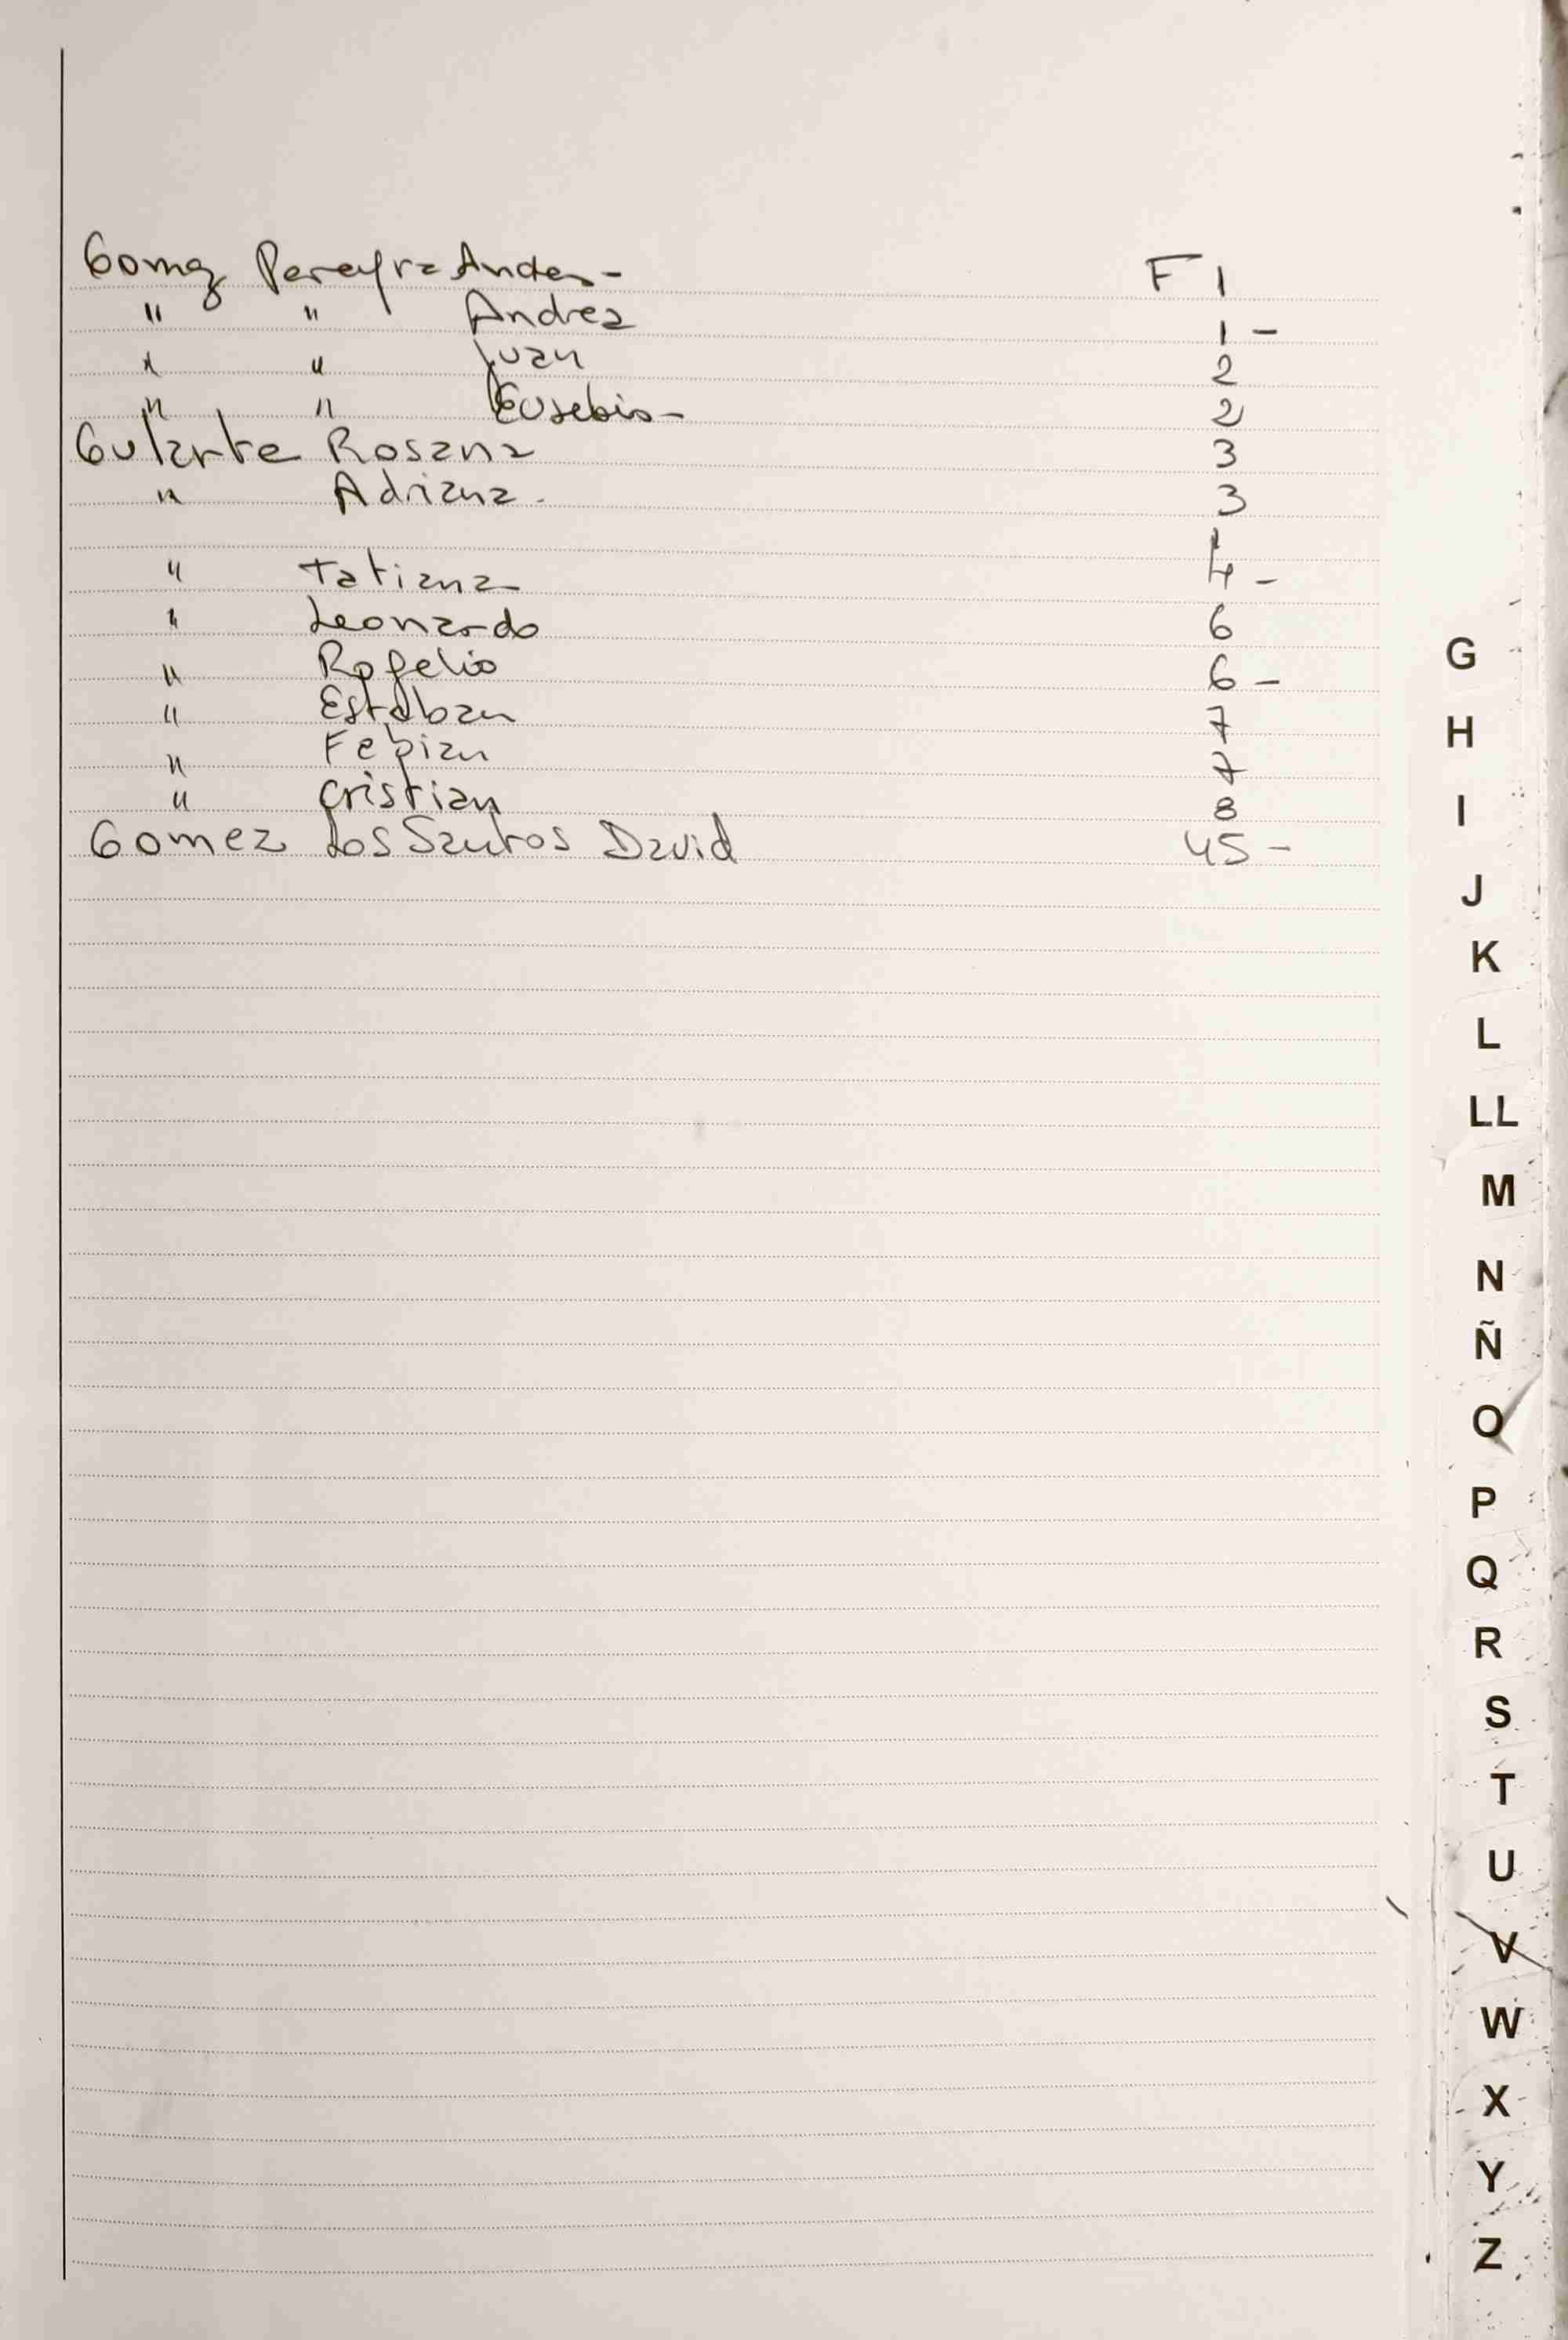 Gomez Pereyra Andes - F 1
" " Andrea 1 -
" " Juan 2
" " Eusebio - 2
Gularte Rosana 3
" Adriana - 3
" Tatiana 4 -
" Leonardo 6
" Rogelio 6 -
" Esteban 7
" Fabian 7
" Cristian 8
Gomez dos Santos David 45 -
G
H
I
J
K
L
LL
M
N
Ñ
O
P
Q
R
S
T
U
V
W
X
Y
Z